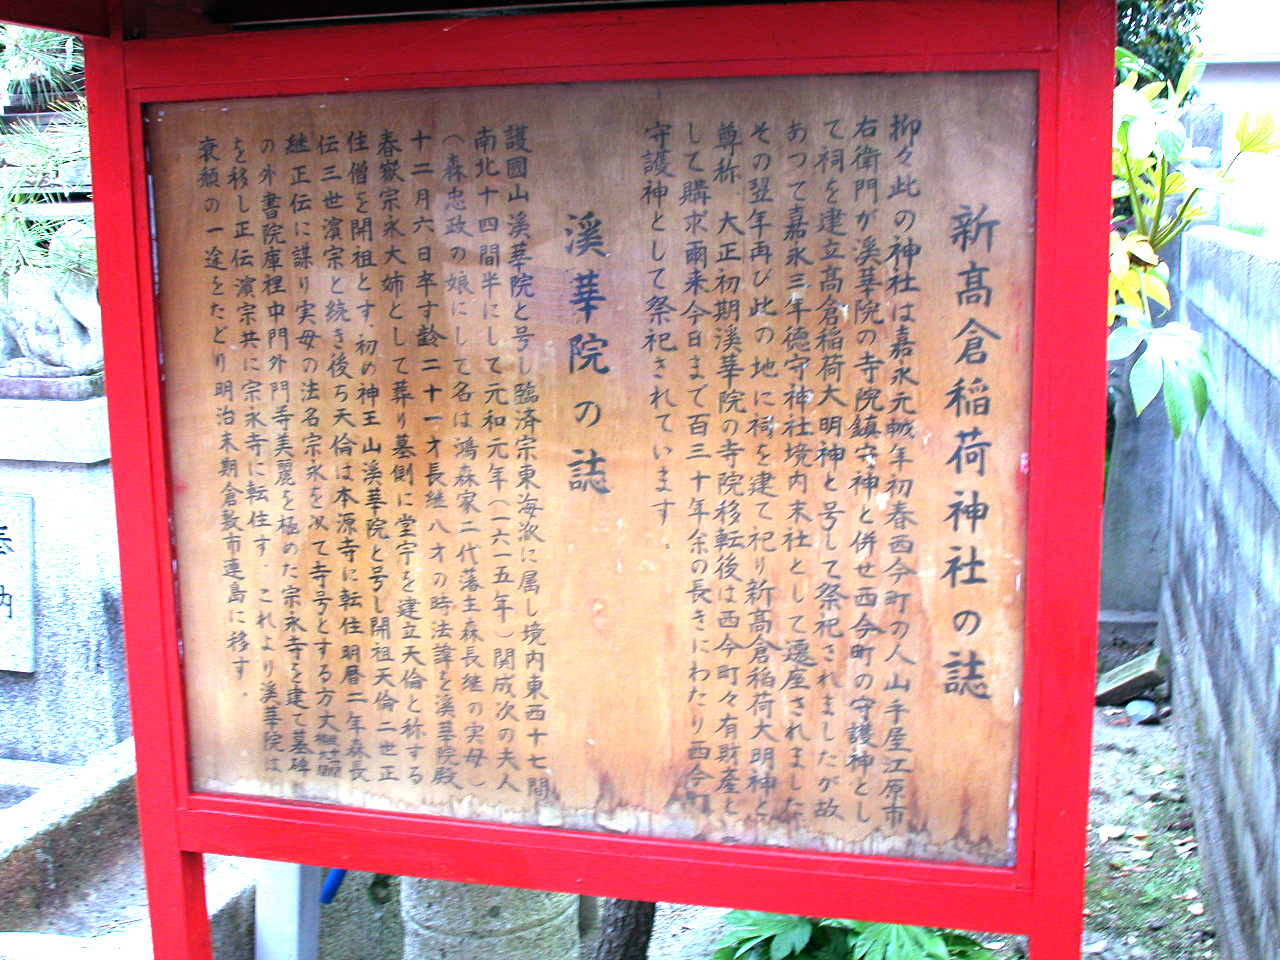 新髙倉稲荷神社の誌
抑々此の神社は嘉永元戟年初春西今町の人山手屋江原市
右衛門が溪華院の寺院鎮守神と併せ西今町の守護神とし
て祠を建立髙倉稲荷大明神と号して祭祀されましたが故
あつて嘉永三年徳守神社境内末社として遷座されました
その翌年再び此の地に祠を建て祀り新髙倉稲荷大明神と
尊称、大正初期溪華院の寺院移転後は西今町々有財産と
して購求爾来今日まで百三十年余の長きにわたり西今町
守護神として祭祀されています
溪華院の誌
護國山溪華院と号し臨済宗東海派に属し境内東西十七間
南北十四間半にして元和元年(一六一五年)開成次の夫人
(森忠政の娘にして名は鴻森家二代藩主森長継の実母)
十二月六日卒す齢二十一才長継八才の時法諱を溪華院殿
春嶽宗永大姉として葬り墓側に堂宇を建立天倫と称する
住僧を開祖とす、初め神王山溪華院と号し開祖天倫二世正
伝三世濱宗と続き後ち天倫は本源寺に転住明暦二年森長
継正伝に謀り実母の法名宗永を以て寺号とする方丈
の外書院庫裡中門外門等美麗を極めた宗永寺を建て墓碑
を移し正伝濱宗共に宗永寺に転住す、これより溪華院は
衰頽の一途をたどり明治末期倉敷市連島に移す.
納